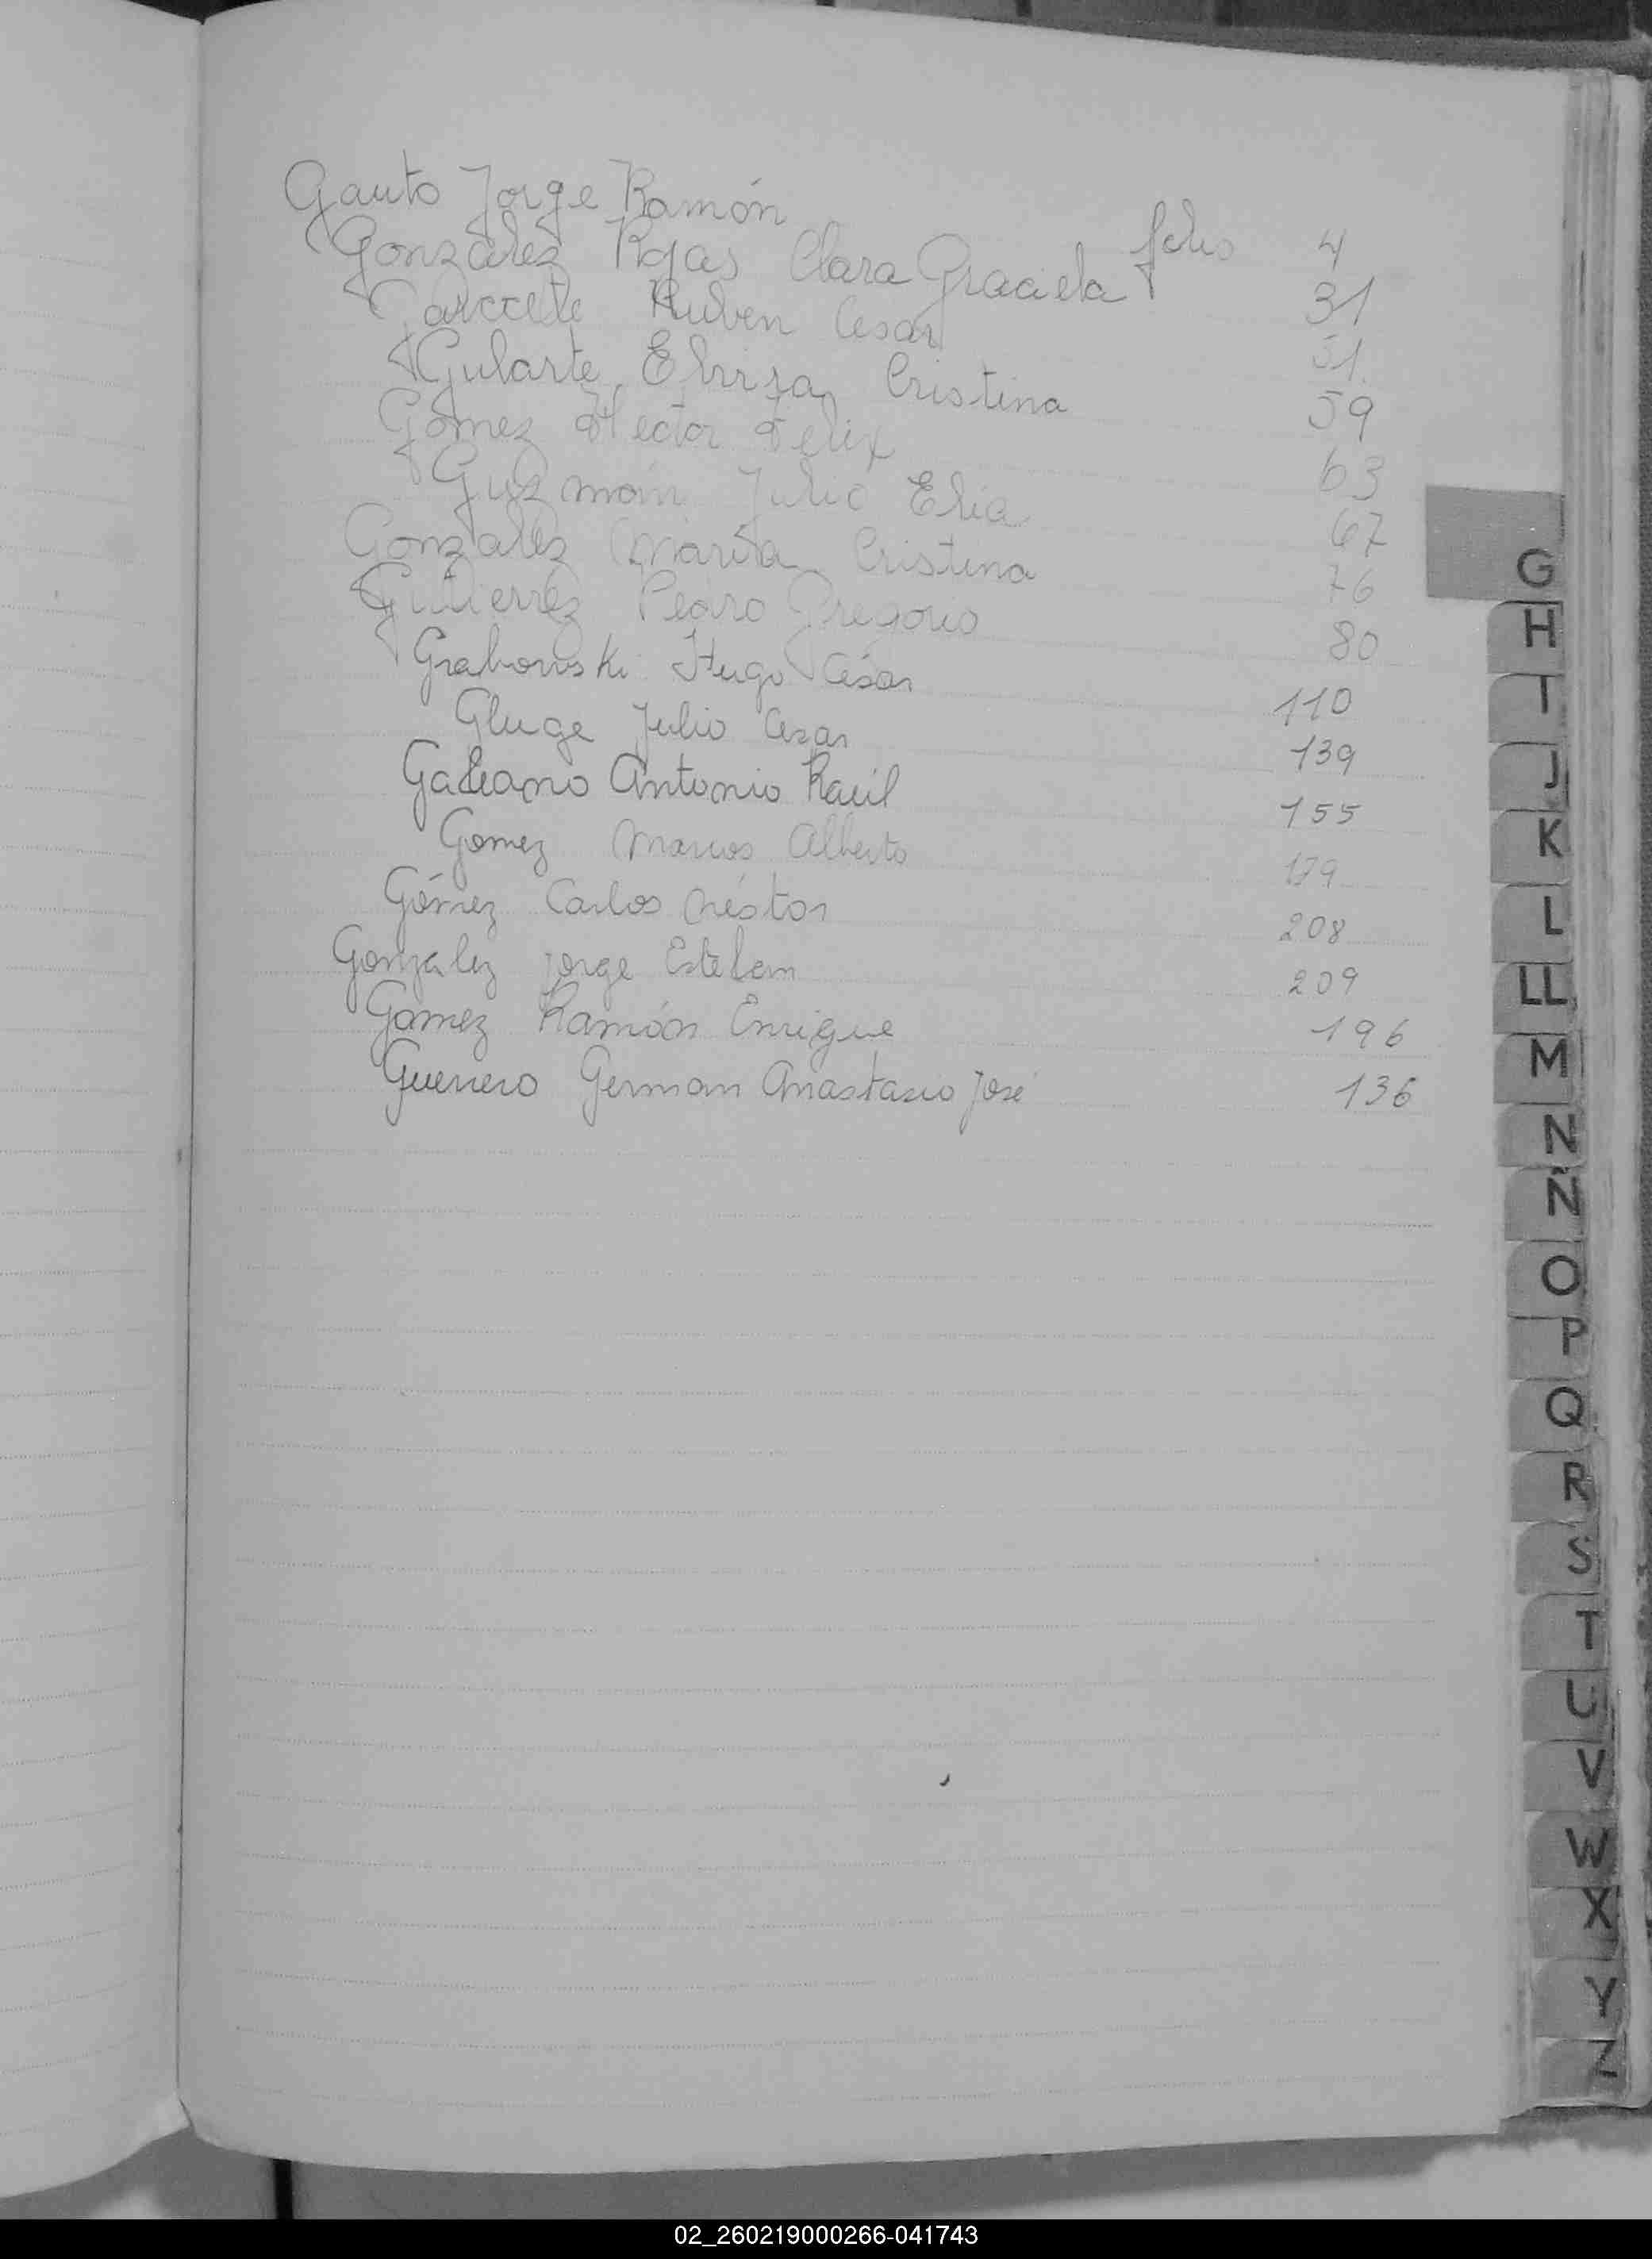 Gauto Jorge Ramón folio 4
González Rojas Clara Graciela 31
Garcete Ruben Cesar 51
Gularte Elvira Cristina 59
Gómez Hector Felix 63
Guzmán Julio Elia 67
Gonzalez María Cristina 76
Gutierrez Pedro Gregorio 80
Grabowski Hugo César 110
Gluge Julio Cesar 139
Galeano Antonio Raúl 155
Gomez Marcos Alberto 179
Gómez Carlos Néstor 208
Gonzalez Jorge Esteban 209
Gomez Ramón Enrique 196
Guerrero German Anastasio José 136
G
H
I
J
K
L
LL
M
N
Ñ
O
P
Q
R
S
T
U
V
W
X
Y
Z
02_260219000266-041743